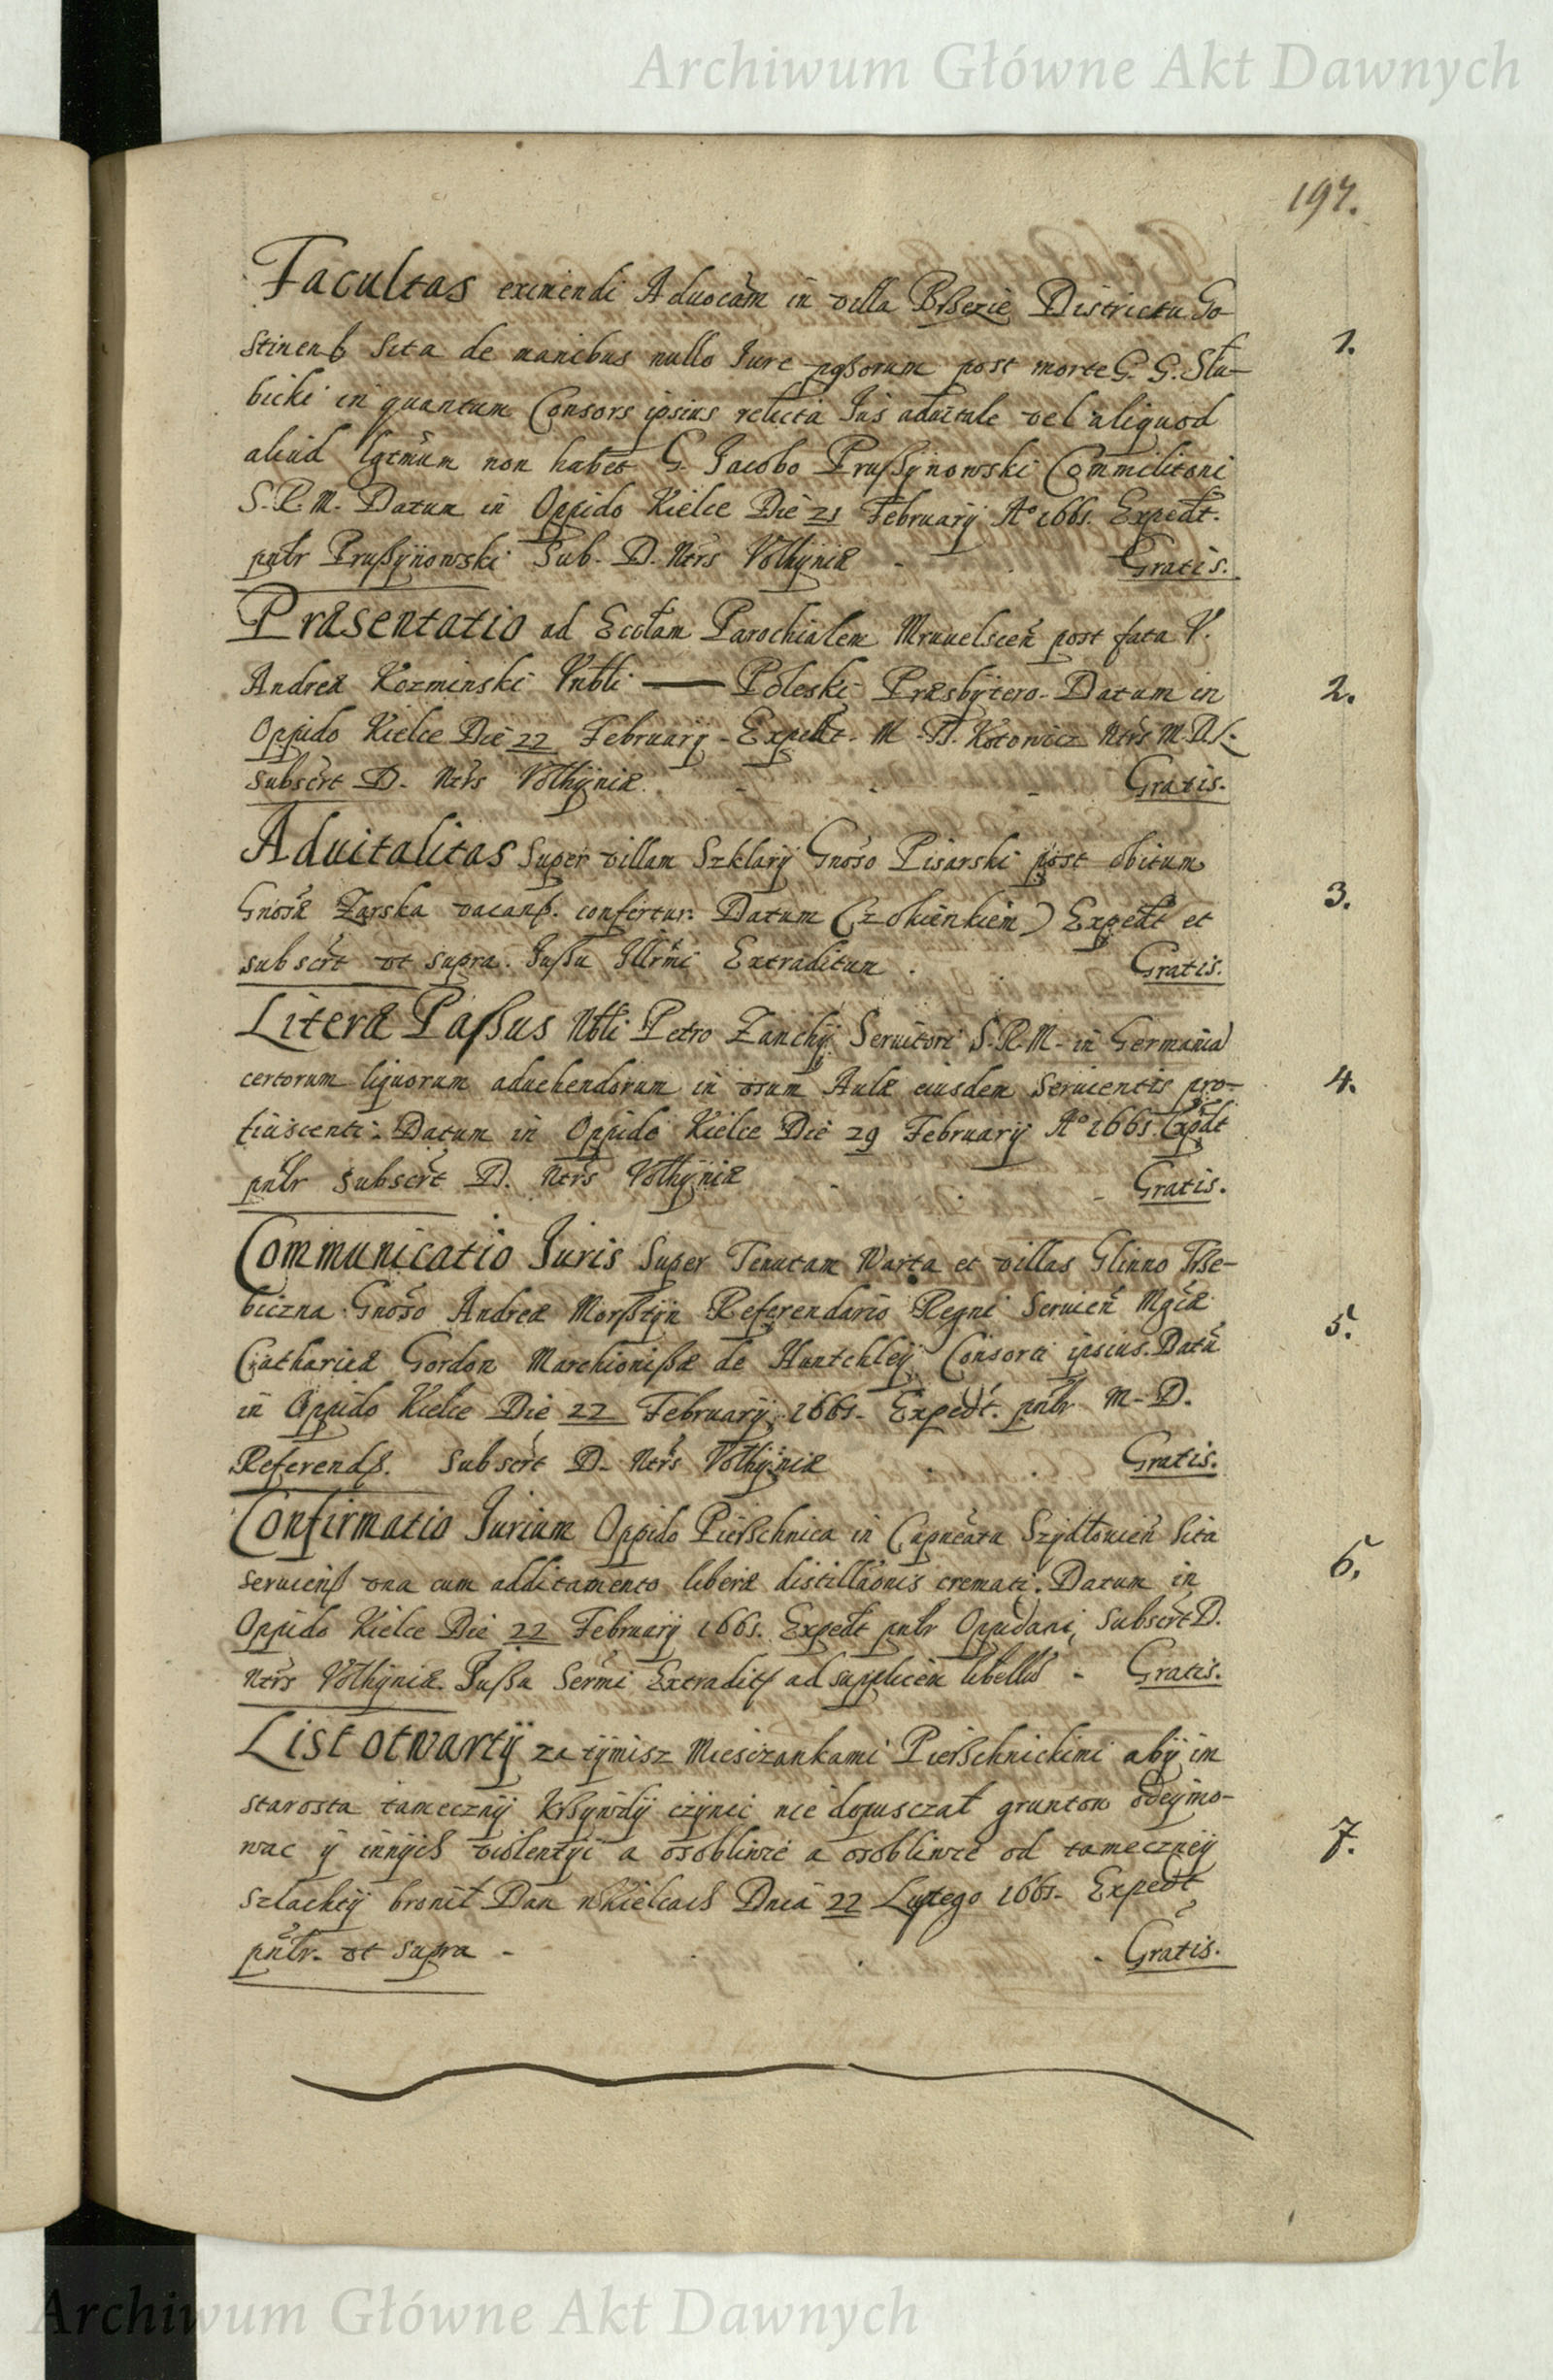 Archiwum Główne Akt Dawnych
197.
Facultas eximendi Aduocãm in villa Brßezie Districtu Go-
stinenß Sita de manibus nullo Jure pgßorum post morte G. G. Słu-
bicki in quantum Consors ipsius relicta Jus aduitale vel aliquod
aliud lgtmũm non habet G. Jacobo Prußÿnowski Commilitoni
S. R. M. Datum in Oppido Kielce Die 21 Februarÿ Aº 1661. Expedt.
pntr Prußÿnowski Sub. D. Ntrs Volhÿniæ - Gratis.
1.
Præsentatio ad Eccłam Parochialem Mrauelscen̄ post fata V.
Andreæ Kozminski Vnbli —— Poleski Præsbÿtero. Datum in
Oppido Kielce Die 22 Februarÿ - Expedt - M. D. Kotowicz Ntrs M. D. L.
Subscrt D. Ntrs Volhÿniæ. - - - Gratis.
2.
Aduitalitas Super villam Szklarÿ Gnoso Pisarski post obitum
Gnosæ Zarska vacanß. confertur. Datum (z okienkiem) Expedt et
subscrt vt supra. Jußu Illrmi Extraditum . Gratis.
3.
Literæ Paßus Nbli Petro Zanchÿ Seruitori S. R. M. in Germania
certorum liquorum aduehendorum in vsum Aulæ eiusdem Seruientis pro-
ficiscenti. Datum in Oppido Kielce Die 29 Februarÿ Aº 1661. Expdt
pntr Subscrt D. Ntrs Volhÿniæ - - - Gratis.
4.
Communicatio Juris Super Tenutam Warta et villas Glinno Trße-
biczna Gnoso Andreæ Morßtÿn Referendario Regni Seruien̄ Mgcæ
Cathariæ Gordon Marchionißæ de Huntchleÿ Consorti ipsius. Datũ
in Oppido Kielce Die 22 Februarÿ 1661. Expedt. pntr M. D.
Referendß. Subscrt D. Ntrs Volhÿniæ Gratis.
5.
Confirmatio Jurium Oppido Pierßchnica in Capnẽatu Szÿdłouien̄ Sita
seruienß vna cum additamento liberæ distillaõnis cremati. Datum in
Oppido Kielce Die 22 Februarÿ 1661. Expedt pntr Oppidani, Subscrt D.
Ntrs Volhÿniæ. Jußu Sermi Extradit ad supplicem libellũ - Gratis.
6.
List otwartÿ za tÿmisz Miesczankami Pierßchnickimi abÿ im
starosta tamecznÿ krßÿwdÿ czÿnic nie dopusczał gruntow odeÿmo-
wac ÿ innÿch violentÿi a osobliwie a osobliwie od tameczneÿ
szlachtÿ bronił Dan w Kielcach Dnia 22 Lutego 1661. Expedt
pntr. vt supra - . . - Gratis.
7.
Archiwum Główne Akt Dawnych